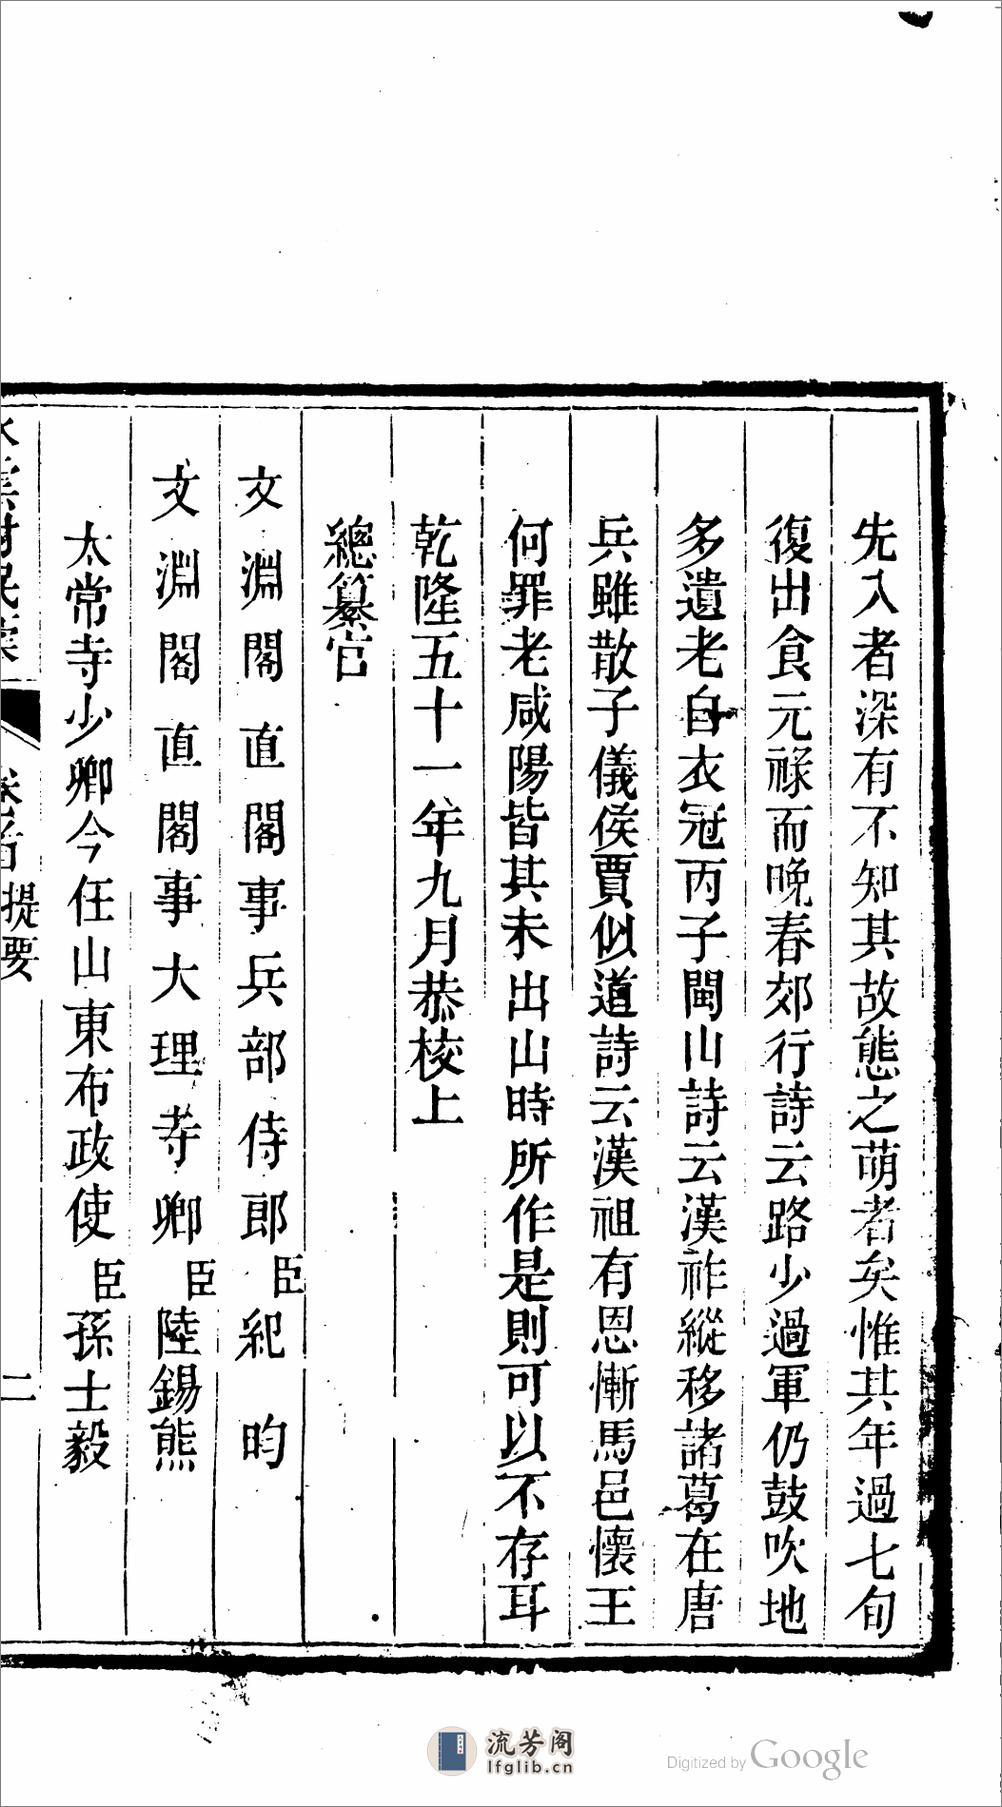 先入者深有不知其故態之萌者矣惟其年過七旬
復出食元祿而晚春郊行詩云路少過軍仍鼓吹地
多遺老自衣冠丙子閩山詩云漢祚縱移諸葛在唐
兵雖散子儀侯賈似道詩云漢祖有恩慚馬邑懷王
何罪老咸陽皆其未出山時所作是則可以不存耳
乾隆五十一年九月恭校上
總纂官
文淵閣直閣事兵部侍郎臣紀昀
文淵閣直閣事大理寺卿臣陸錫熊
太常寺少卿今任山東布政使臣孫士毅
提要
二
流芳阁
lfglib.cn
Digitized by Google